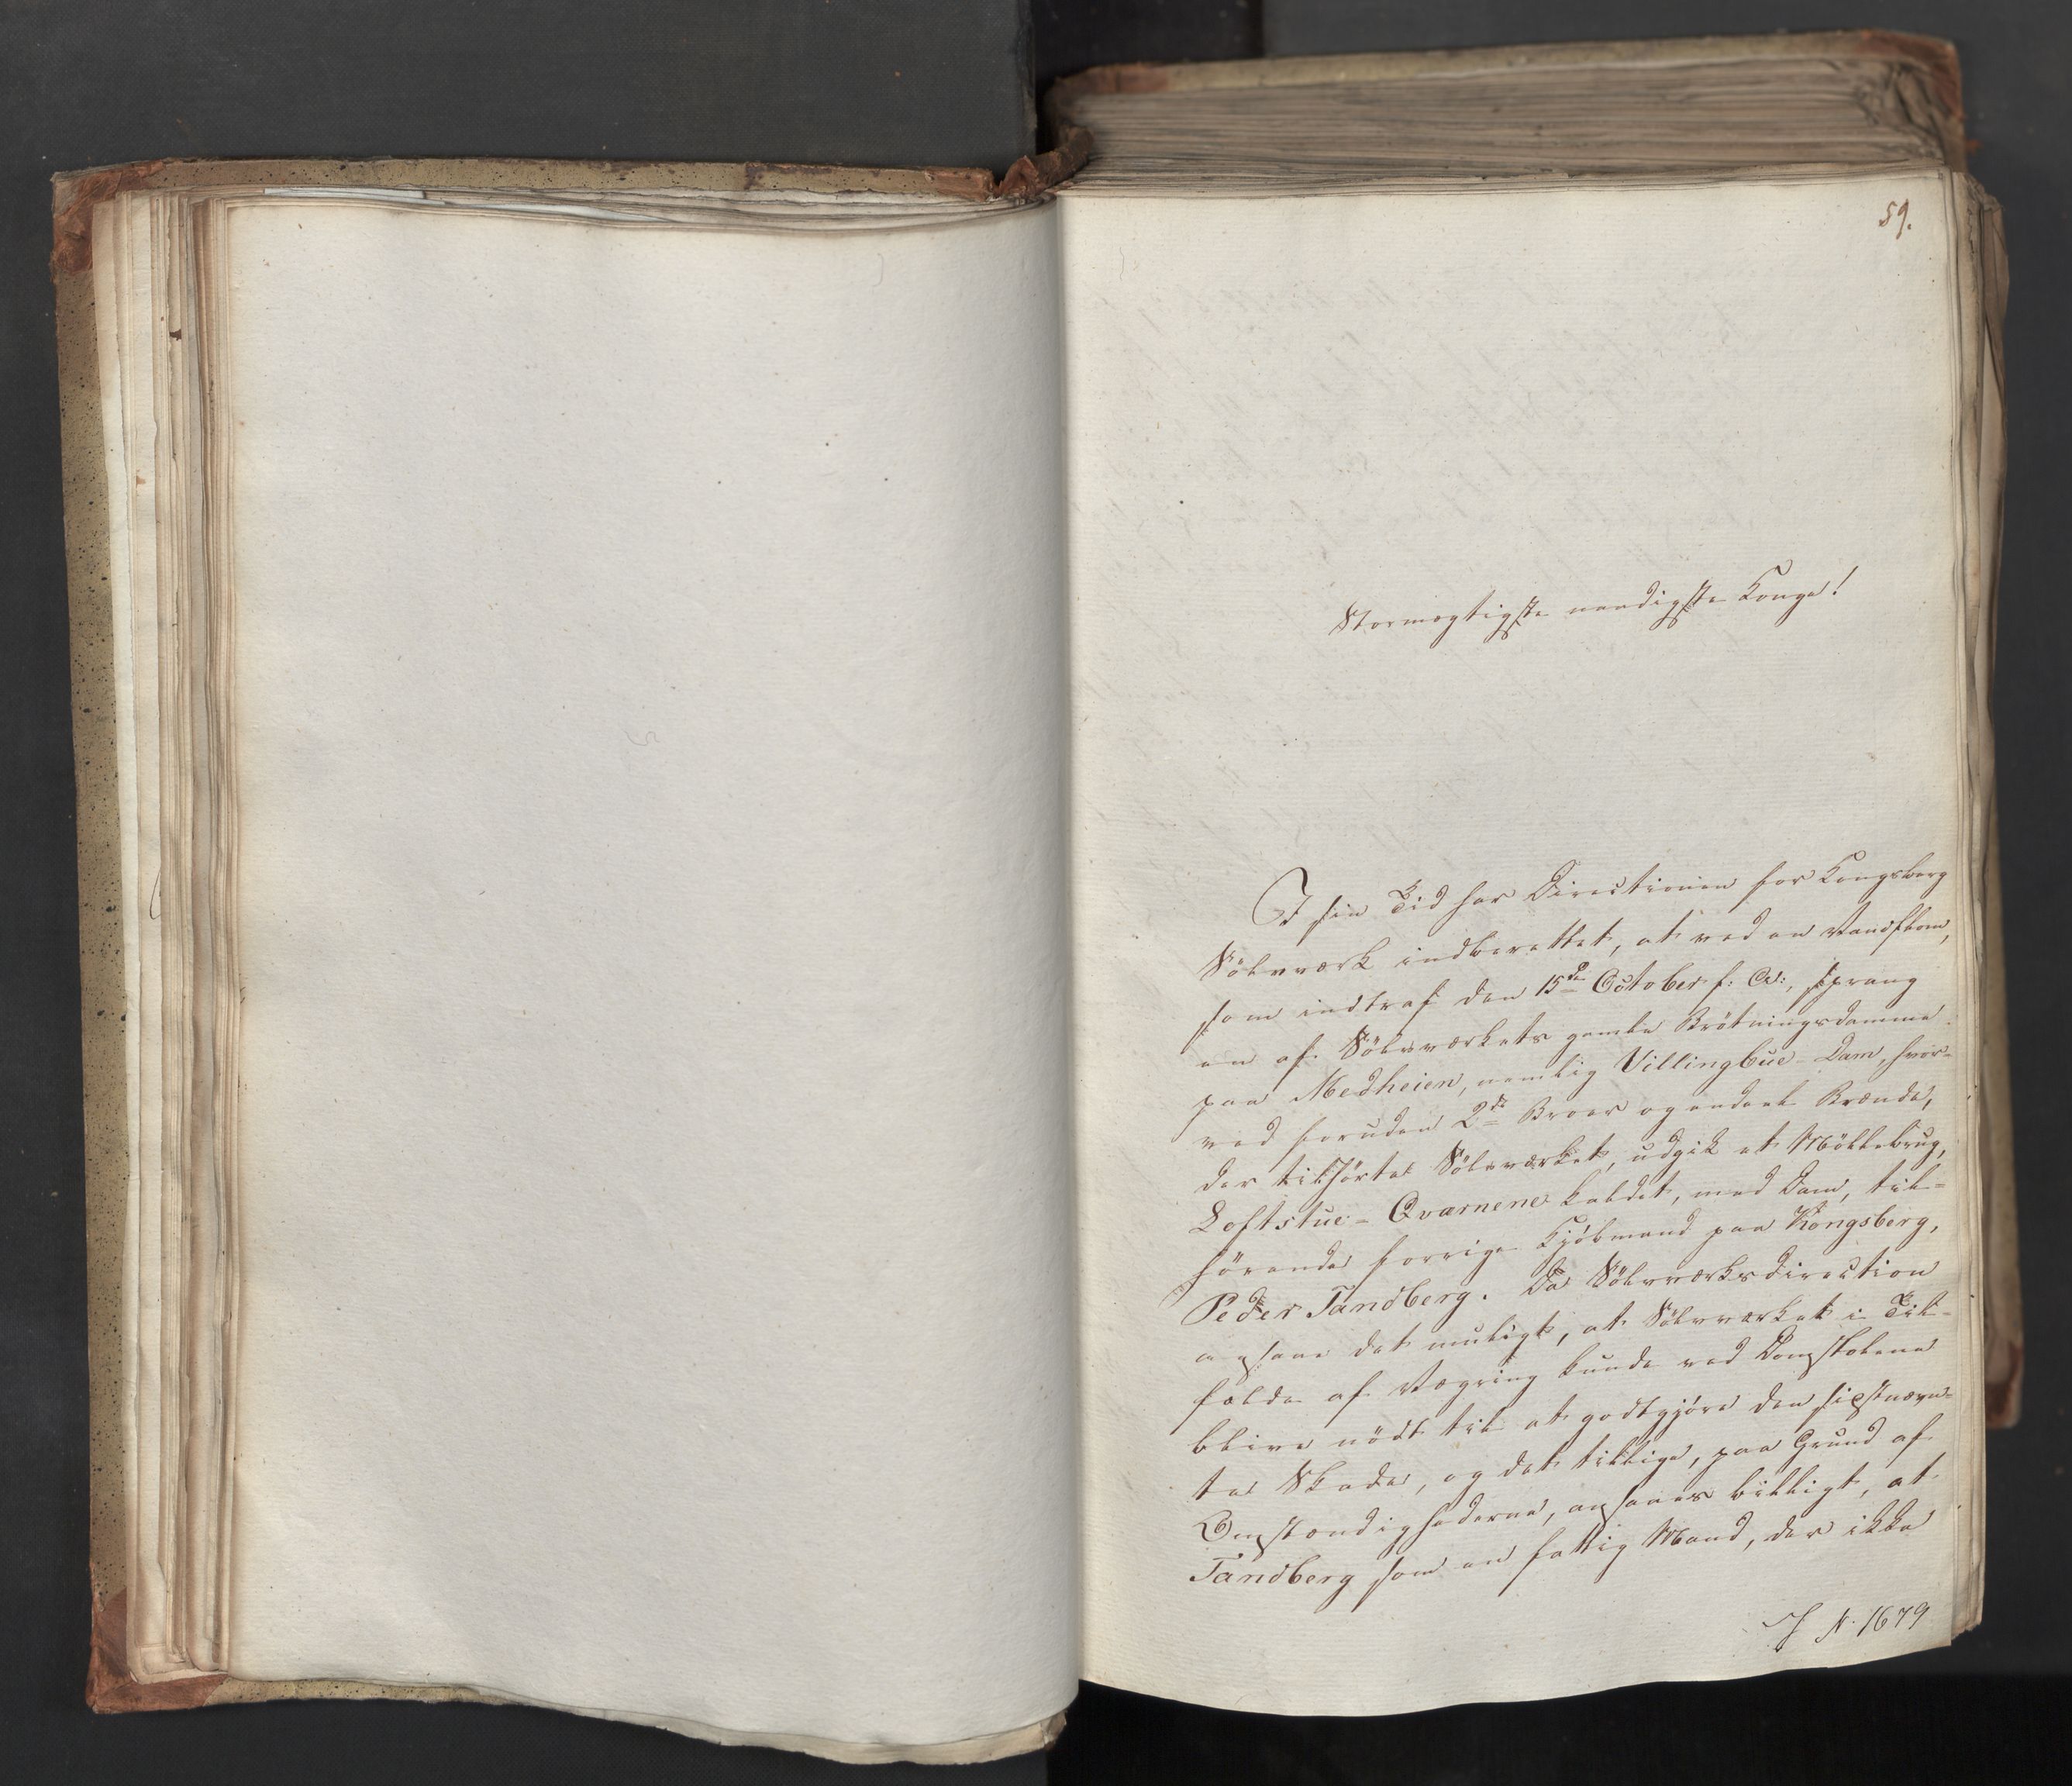 59.
Stormægtigste naadigste Konge!
I sin Tid har Directionen for Kongsberg
Sölvværk indberettet, at ved en Vandflom,
som indtraf den 15de October f: A:, sprang
en af Sölvværkets gamle Brötningsdamme
paa Medheien, nemlig Villingbue-Dam, hvor-
ved foruden 2de Broer og endeel Brænde,
der tilhørte Sölvværket, udgik et Möllebrug,
Loftstue-Qværnene kaldet, med Dam, til-
hörende forrige Kjöbmand paa Kongsberg,
Peder Tandberg. Da Sölvværksdirection
ansaae det muligt, at Sölvværket i Til-
fælde af Vægring kunde ved Domstolene
blive nödt til at godtgjöre den sidstnævn-
te Skade, og det tillige, paa Grund af
Omstændighederne, ansaaes billigt, at
Tandberg som en fattig Mand, der ikke
J N. 1679